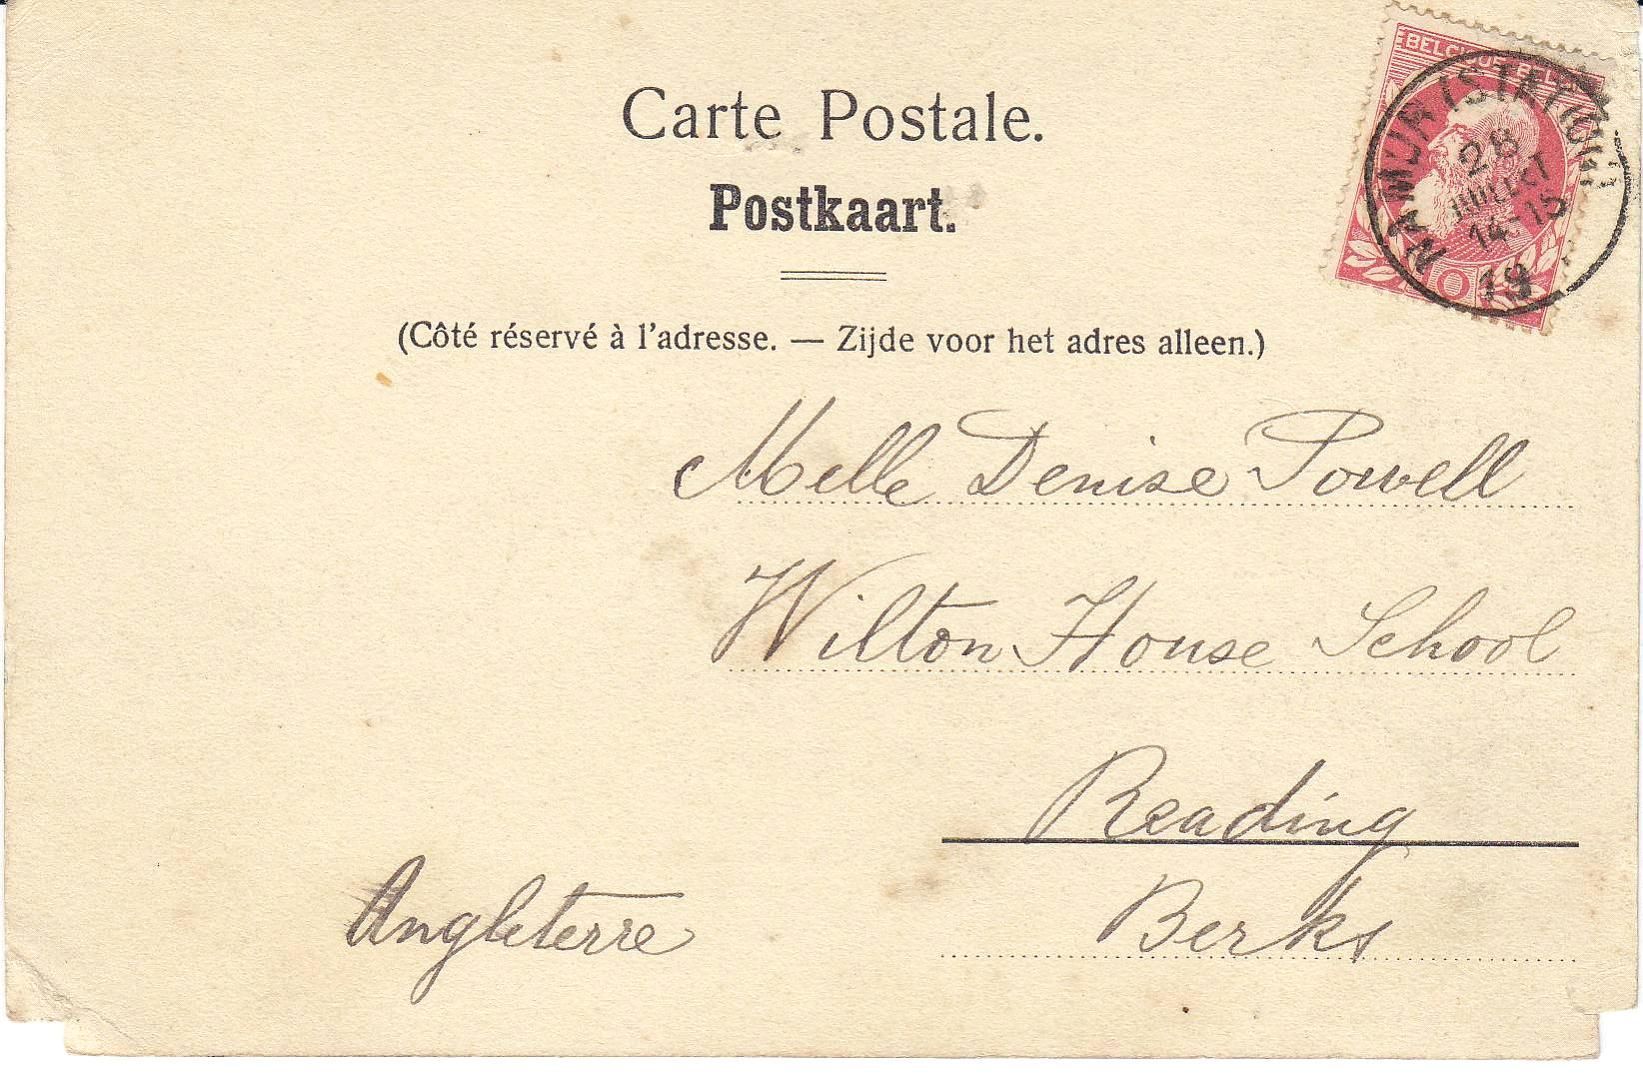 Carte Postale.
Postkaart.
(Côté réservé à l'adresse. — Zijde voor het adres alleen.)
NAMUR (STATION)
28
JUILLET
14-15
19
Melle Denise Powell
Wilton House School
Reading
Berks
Angleterre